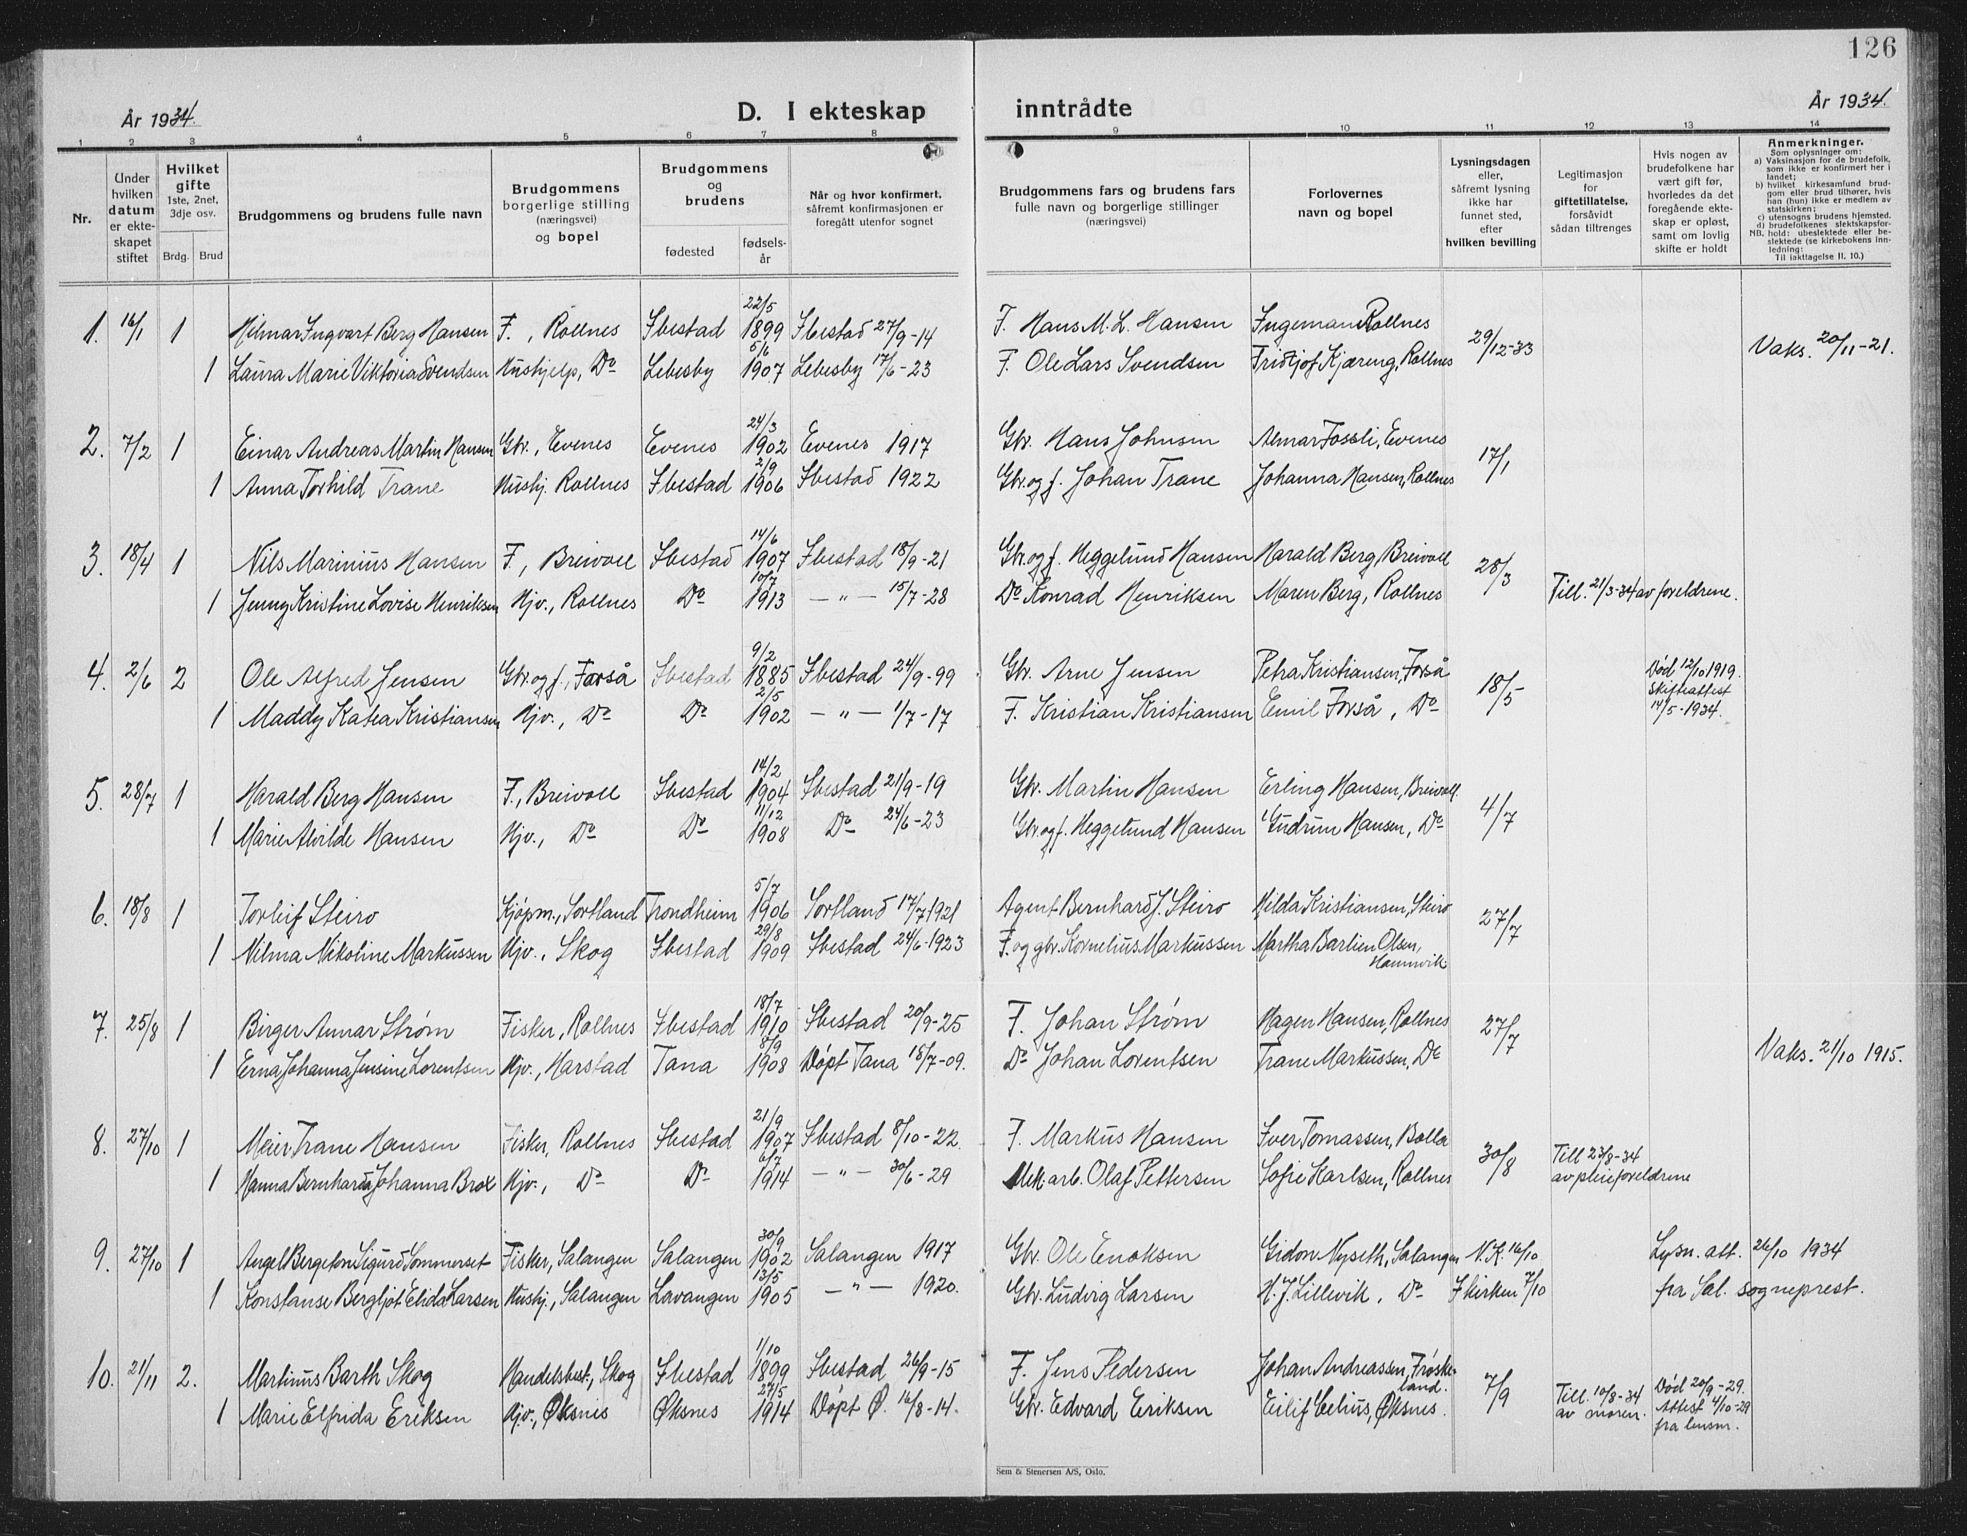 126
År 1934.
D. I ekteskap inntrådte
År 1934.
1 2 3 4 5 6 7 8 9 10 11 12 13 14
Nr.
Under hvilken datum er ekteskapet stiftet
Hvilket gifte
1ste, 2net, 3dje osv.
Brdg. Brud
Brudgommens og brudens fulle navn
Brudgommens borgerlige stilling (næringsvei) og bopel
Brudgommens og brudens
fødested
fødselsår
Når og hvor konfirmert, såfremt konfirmasjonen er foregått utenfor sognet
Brudgommens fars og brudens fars fulle navn og borgerlige stillinger (næringsvei)
Forlovernes navn og bopel
Lysningsdagen eller, såfremt lysning ikke har funnet sted, efter hvilken bevilling
Legitimasjon for giftetillatelse, forsåvidt sådan tiltrenges
Hvis nogen av brudefolkene har vært gift før, hvorledes da det foregående ekteskap er opløst, samt om lovlig skifte er holdt
Anmerkninger.
Som oplysninger om:
a) Vaksinasjon for de brudefolk, som ikke er konfirmert her i landet;
b) hvilket kirkesamfund brudgom eller brud tilhører, hvis han (hun) ikke er medlem av statskirken;
c) utensogns brudens hjemsted.
d) brudefolkenes slektskapsforhold: ubeslektede eller beslektede (se kirkebokens innledning:
NB. Til iakttagelse II. 10.)
1. 16/1 1 Hilmar Ingvart Berg Hansen F., Rollnes Ibestad 22/5 1899 Ibestad 27/9-14 F. Hans M. L. Hansen Ingeman Rollnes 29/12-33 Vaks. 20/11-21.
1 Laura Marie Viktoria Svendsen Hushjelp, Do Lebesby 5/6 1907 Lebesby 17/6-23 F. Ole Lars Svendsen Fridtjof Kjæreng, Rollnes
2. 7/2 1 Einar Andreas Martin Hansen Gbr., Evenes Evenes 24/3 1902 Evenes 1917 Gbr. Hans Johnsen Almar Fossli, Evenes 17/1
1 Anna Torhild Trane Hushj. Rollnes Ibestad 2/9 1906 Ibestad 1922 Gbr. og f. Johan Trane Johanna Hansen, Rollnes
3. 18/4 1 Nils Marinius Hansen F., Breivoll Ibestad 14/6 1907 Ibestad 18/9-21 Gbr. og f. Heggelund Hansen Harald Berg, Breivoll 28/3
1 Jenny Kristine Lovise Henriksen Hjv., Rollnes Do 10/7 1913 — " — 15/7-28 Do Konrad Henriksen Maren Berg, Rollnes Till. 21/3-34 av foreldrene.
4. 2/6 2 Ole Alfred Jensen Gbr. og f., Forså Ibestad 9/2 1885 Ibestad 24/9-99 Gbr. Arne Jensen Petra Kristiansen, Forså 18/5 Død 12/10 1919. Skifteattest 14/5-1934.
1 Maddy Katea Kristiansen Hjv., Do Do 2/5 1902 — " — 1/7-17 F. Kristian Kristiansen Emil Forså, Do
5. 28/7 1 Harald Berg Hansen F., Breivoll Ibestad 14/2 1904 Ibestad 21/9-19 Gbr. Martin Hansen Erling Hansen, Breivoll. 4/7
1 Marie Alvilde Hansen Hjv., Do Do 11/12 1908 Do 24/6-23 Gbr. og f. Heggelund Hansen Gudrun Hansen, Do
6. 18/8 1 Torleif Steiro Kjøpm., Sortland Trondheim 5/7 1906 Sortland 17/7 1921 Agent Bernhard J. Steiro Hilda Kristiansen, Steiro 27/7
1 Nilma Nikoline Markussen Hjv., Skog Ibestad 29/8 1909 Ibestad 24/6-1923 F. og gbr. Kornelius Markussen Martha Barlien Olsen, Hamnvik
7. 25/8 1 Birger Annar Strøm Fisker, Rollnes Ibestad 18/7 1910 Ibestad 20/9-25 F. Johan Strøm Hagen Hansen, Rollnes 27/7
1 Erna Johanna Jensine Lorentsen Hjv., Harstad Tana 8/9 1908 Døpt Tana 18/7-09. Do Johan Lorentsen Trane Markussen, Do Vaks. 21/10 1915.
8. 27/10 1 Meier Trane Hansen Fisker, Rollnes Ibestad 21/9 1907 Ibestad 8/10-22. F. Markus Hansen Iver Tomassen, Bolla 30/8 Till 23/8-34
1 Hanna Bernharda Johanna Brox Hjv., Do Do 6/7 1914 — " — 30/6-29 Mek. arb. Olaf Pettersen Sofie Karlsen, Rollnes av pleieforeldrene
9. 27/10 1 Angel Bergeton Sigurd Sommerset Fisker, Salangen Salangen 30/9 1902 Salangen 1917 Gbr. Ole Enoksen Gidon Nyseth, Salangen N.K. 16/10 Lysn. att. 26/10 1934
1 Konstanse Bergljot Elida Larsen Hushj., Salangen Lavangen 13/5 1905 — " — 1920. Gbr. Ludvig Larsen H. J. Lillevik, Do I kirken 7/10 fra Sal. sogneprest.
10. 21/11 2. Martinus Barth Skog Handelsbest., Skog Ibestad 1/10 1899 Ibestad 26/9-15 F. Jens Pedersen Johan Andreassen, Frøskeland. 7/9
1 Marie Elfrida Eriksen Hjv., Øksnes Øksnes 27/5 1914 Døpt Ø. 16/8-14. Gbr. Edvard Eriksen Eilif Celius, Øksnes. Till. 10/8-34 av moren. Død 20/9-29. Attest 4/10-29 fra lensm.
Sem & Stenersen A/S, Oslo.